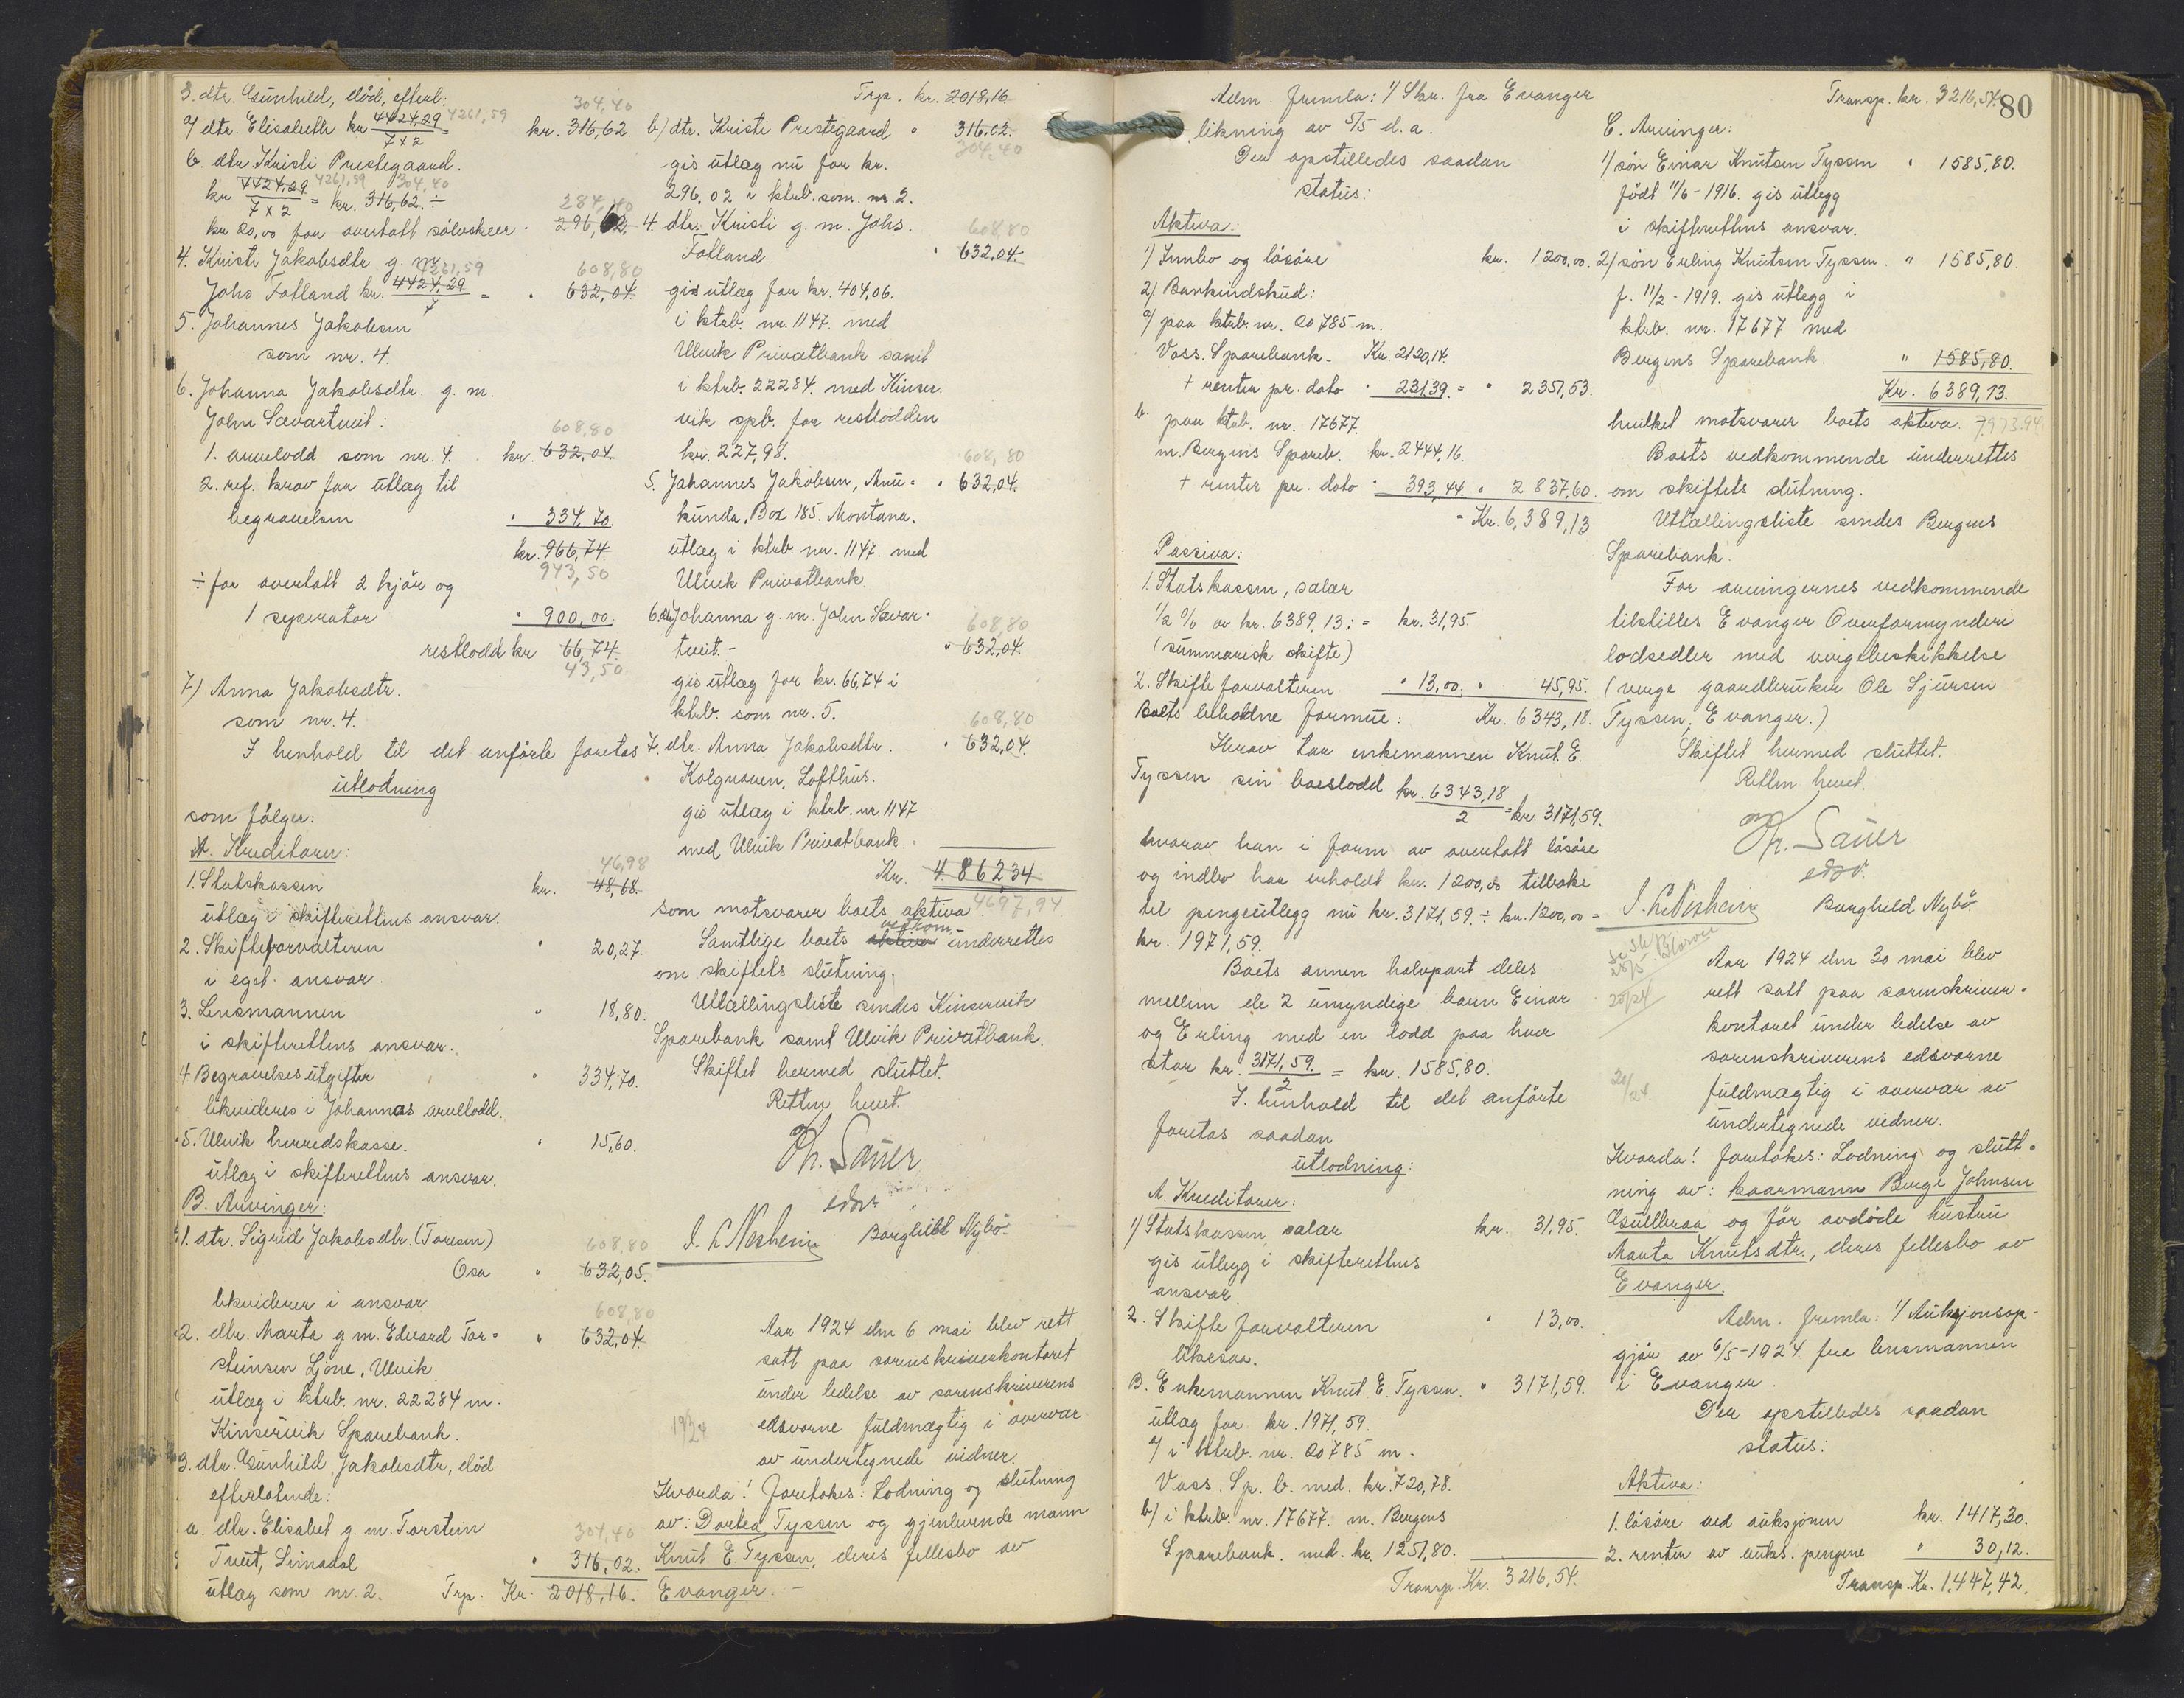 3. dtr. Gunhild, død, efterl:
a/ dtr. Elisabeth kr 4424,29 / 7x2 = 4261,59 kr. 316,62. 304,40
b. dtr Kristi Prestegaard.
kr 4424,29 / 7x2 4261,59 = kr. 316,62. ÷ 304,40
kr 20,00 for overtatt sølvskeer " 296,62. 284,40
4. Kristi Jakobsdtr g. m.
Johs Fotland kr. 4424,29 / 7 = 4261,59 " 632,04. 608,80
5. Johannes Jakobsen
som nr. 4.
6. Johanna Jakobsdtr. g. m.
John Sævartveit:
1. arvelodd som nr. 4. kr. 632,04. 608,80
2. ref. krav for utlæg til
begravelsen " 334,70.
kr. 966,74.
943,50
÷ for overtatt 2 kjør og
1 seperator " 900,00.
restlodd kr 66,74.
43,50
7) Anna Jakobsdtr.
som nr. 4.
I henhold til det anførte foretas
utlodning
som følger:
A. Kreditorer:
1. Statskassen kr. 48,68. 46,98
utlæg i skifterettens ansvar.
2. Skifteforvalteren " 20,27.
i eget ansvar.
3. Lensmannen " 18,80.
i skifterettens ansvar.
4 Begravelsesutgifter " 334,70.
likvideres i Johannas arvelodd.
5. Ulvik herredskasse. " 15,60.
utlæg i skifterettens ansvar.
B. Arvinger:
1. dtr. Sigrid Jakobsdtr. (Toresen) 608,80
Osa " 632,05.
likviderer i ansvar.
2. dtr. Marta g m. Edvard Tor= " 632,04. 608,80
steinsen Ljone, Ulvik
utlæg i ktrb. nr. 22284 m.
Kinservik Sparebank.
3. dtr. Gunhild Jakobsdtr, død
efterlatende:
a. dtr. Elisabet g. m. Torstein 304,40
Tveit, Simadal " 316,02.
utlæg som nr. 2. Trp. Kr. 2018,16.
Trp. kr. 2018,16
b) dtr. Kristi Prestegaard " 316,02.
304,40
gis utlæg nu for kr.
296,02 i ktrb. som nr. 2.
4. dtr. Kristi g. m. Johs. 608,80
Fotland. " 632,04.
gis utlæg for kr. 404,06.
i ktrb. nr. 1147. med
Ulvik Privatbank samt
i ktrb. 22284. med Kinser.
vik spb. for restlodden
kr. 227,98. 608,80
5. Johannes Jakobsen, Ana= " 632,04.
kunda, Box 185. Montana.
utlæg i ktrb. nr. 1147. med
Ulvik Privatbank.
6. dtr Johanna g. m. John Sævar= 608,80
tveit.- " 632,04.
gis utlæg for kr. 66,74 i
ktrb. som nr. 5. 608,80
7. dtr. Anna Jakobsdtr. " 632,04.
Kolgraven, Lofthus.
gis utlæg i ktrb. nr. 1147
med Ulvik Privatbank.
Kr. 4862,34
som motsvarer boets aktiva. 4697,94
Samtlige boets aktiva vedkom. underrettes
om skiftets slutning.
Uttællingsliste sendes Kinservik
Sparebank samt Ulvik Privatbank.
Skiftet hermed sluttet.
Retten hevet.
Th. Sauer
edsv.
Borghild Nybø
Aar 1924 den 6 mai blev rett
satt paa sorenskriverkontoret
under ledelse av sorenskriverens
edsvorne fuldmægtig i overvær
av undertegnede vidner.
19/24
Hvorda! Foretokes: Lodning og slutning
av: Dortea Tyssen og gjenlevende mann
Knut E. Tyssen, deres fellesbo av
Evanger. -
80
Adm. fremla: 1/ Skr. fra Evanger
likning av 5/5 d.a.
Der opstilledes saadan
status:
Aktiva:
1) Innbo og løsøre kr. 1200,00.
2). Bankindskud:
a) paa ktrb. nr. 20785 m.
Voss. Sparebank - Kr. 2120,14.
+ renter pr. dato " 231,39. = " 2351,53.
b. paa ktrb. nr. 17677.
m. Bergens Spareb. kr. 2444,16.
+ renter pr. dato " 393,44. " 2837,60.
= Kr. 6,389,13
Passiva:
1. Statskassen, salær
1/2 % av kr. 6389,13: = kr. 31,95.
(summarisk skifte)
2. Skifteforvalteren " 13,00. " 45,95.
Boets beholdne formue: Kr. 6343,18.
Herav tar enkemannen Knut E.
Tyssen sin boeslodd kr. 6343,18 / 2 = kr. 3171,59.
hvorav han i form av overtatt løsøre
og indbo har erholdt kr. 1200,00 tilbake
til pengeutlegg nu kr. 3171,59 ÷ kr. 1200,00 =
kr. 1971,59.
Boets annen halvpart deles
mellem de 2 umyndige barn Einar
og Erling med en lodd paa hver
stor kr. 3171,59. / 2 = kr. 1585,80.
I henhold til det anførte
foretas saadan
utlodning:
A. Kreditorer:
1) Statskassen, salær kr. 31,95.
gis utlegg i skifterettens
ansvar.
2. Skifteforvalteren " 13,00.
likesaa.
B. Enkemannen Knut E. Tyssen. " 3171,59.
utlæg for kr. 1971,59.
a/ i ktrb. nr. 20785 m.
Voss. Sp. b. med. kr. 720,78.
b) i ktrb. nr. 17677. m. Bergens
Sparebank. med. kr. 1251,80.
Transp. Kr. 3216,54.
Transp. kr. 3216,54.
C. Arvinger:
1) søn Einar Knutsen Tyssen " 1585,80.
født 11/6-1916. gis utlegg
i skifterettens ansvar.
2) søn Erling Knutsen Tyssen. " 1585,80.
f. 11/2-1919. gis utlegg i
ktrb. nr. 17677 med
Bergens Sparebank. " 1585,80.
Kr. 6389,13.
hvilket motsvarer boets aktiva. 7973.94
Boets vedkommende underrettes
om skiftets slutning.
Uttællingsliste sendes Bergens
Sparebank.
For arvingernes vedkommende
tilstilles Evanger Overformynderi
lodsedler med vergebeskikkelse
(verge gaardbruker Ole Sjursen
Tyssen, Evanger.)
Skiftet hermed sluttet.
Retten hevet.
Th. Sauer
edsv.
Borghild Nybø.
Aar 1924 den 30 mai blev
rett satt paa sorenskriver=
kontoret under ledelse av
sorenskriverens edsvorne
fuldmægtig i overvær av
undertegnede vidner.
Hvorda! Foretokes: Lodning og slutt=
ning av: kaarmann Børge Johnsen
Gullbraa og før avdøde hustru
Marta Knutsdtr., deres fellesbo av
Evanger.
Adm. fremla: 1/ Auksjonsop-
gjør av 6/5-1924. fra lensmannen
i Evanger.
Der opstilledes saadan
status:
Aktiva:
1. løsøre ved auksjonen kr. 1417,30.
2. renter av auks. pengene " 30,12.
Transp. Kr. 1.447,42.